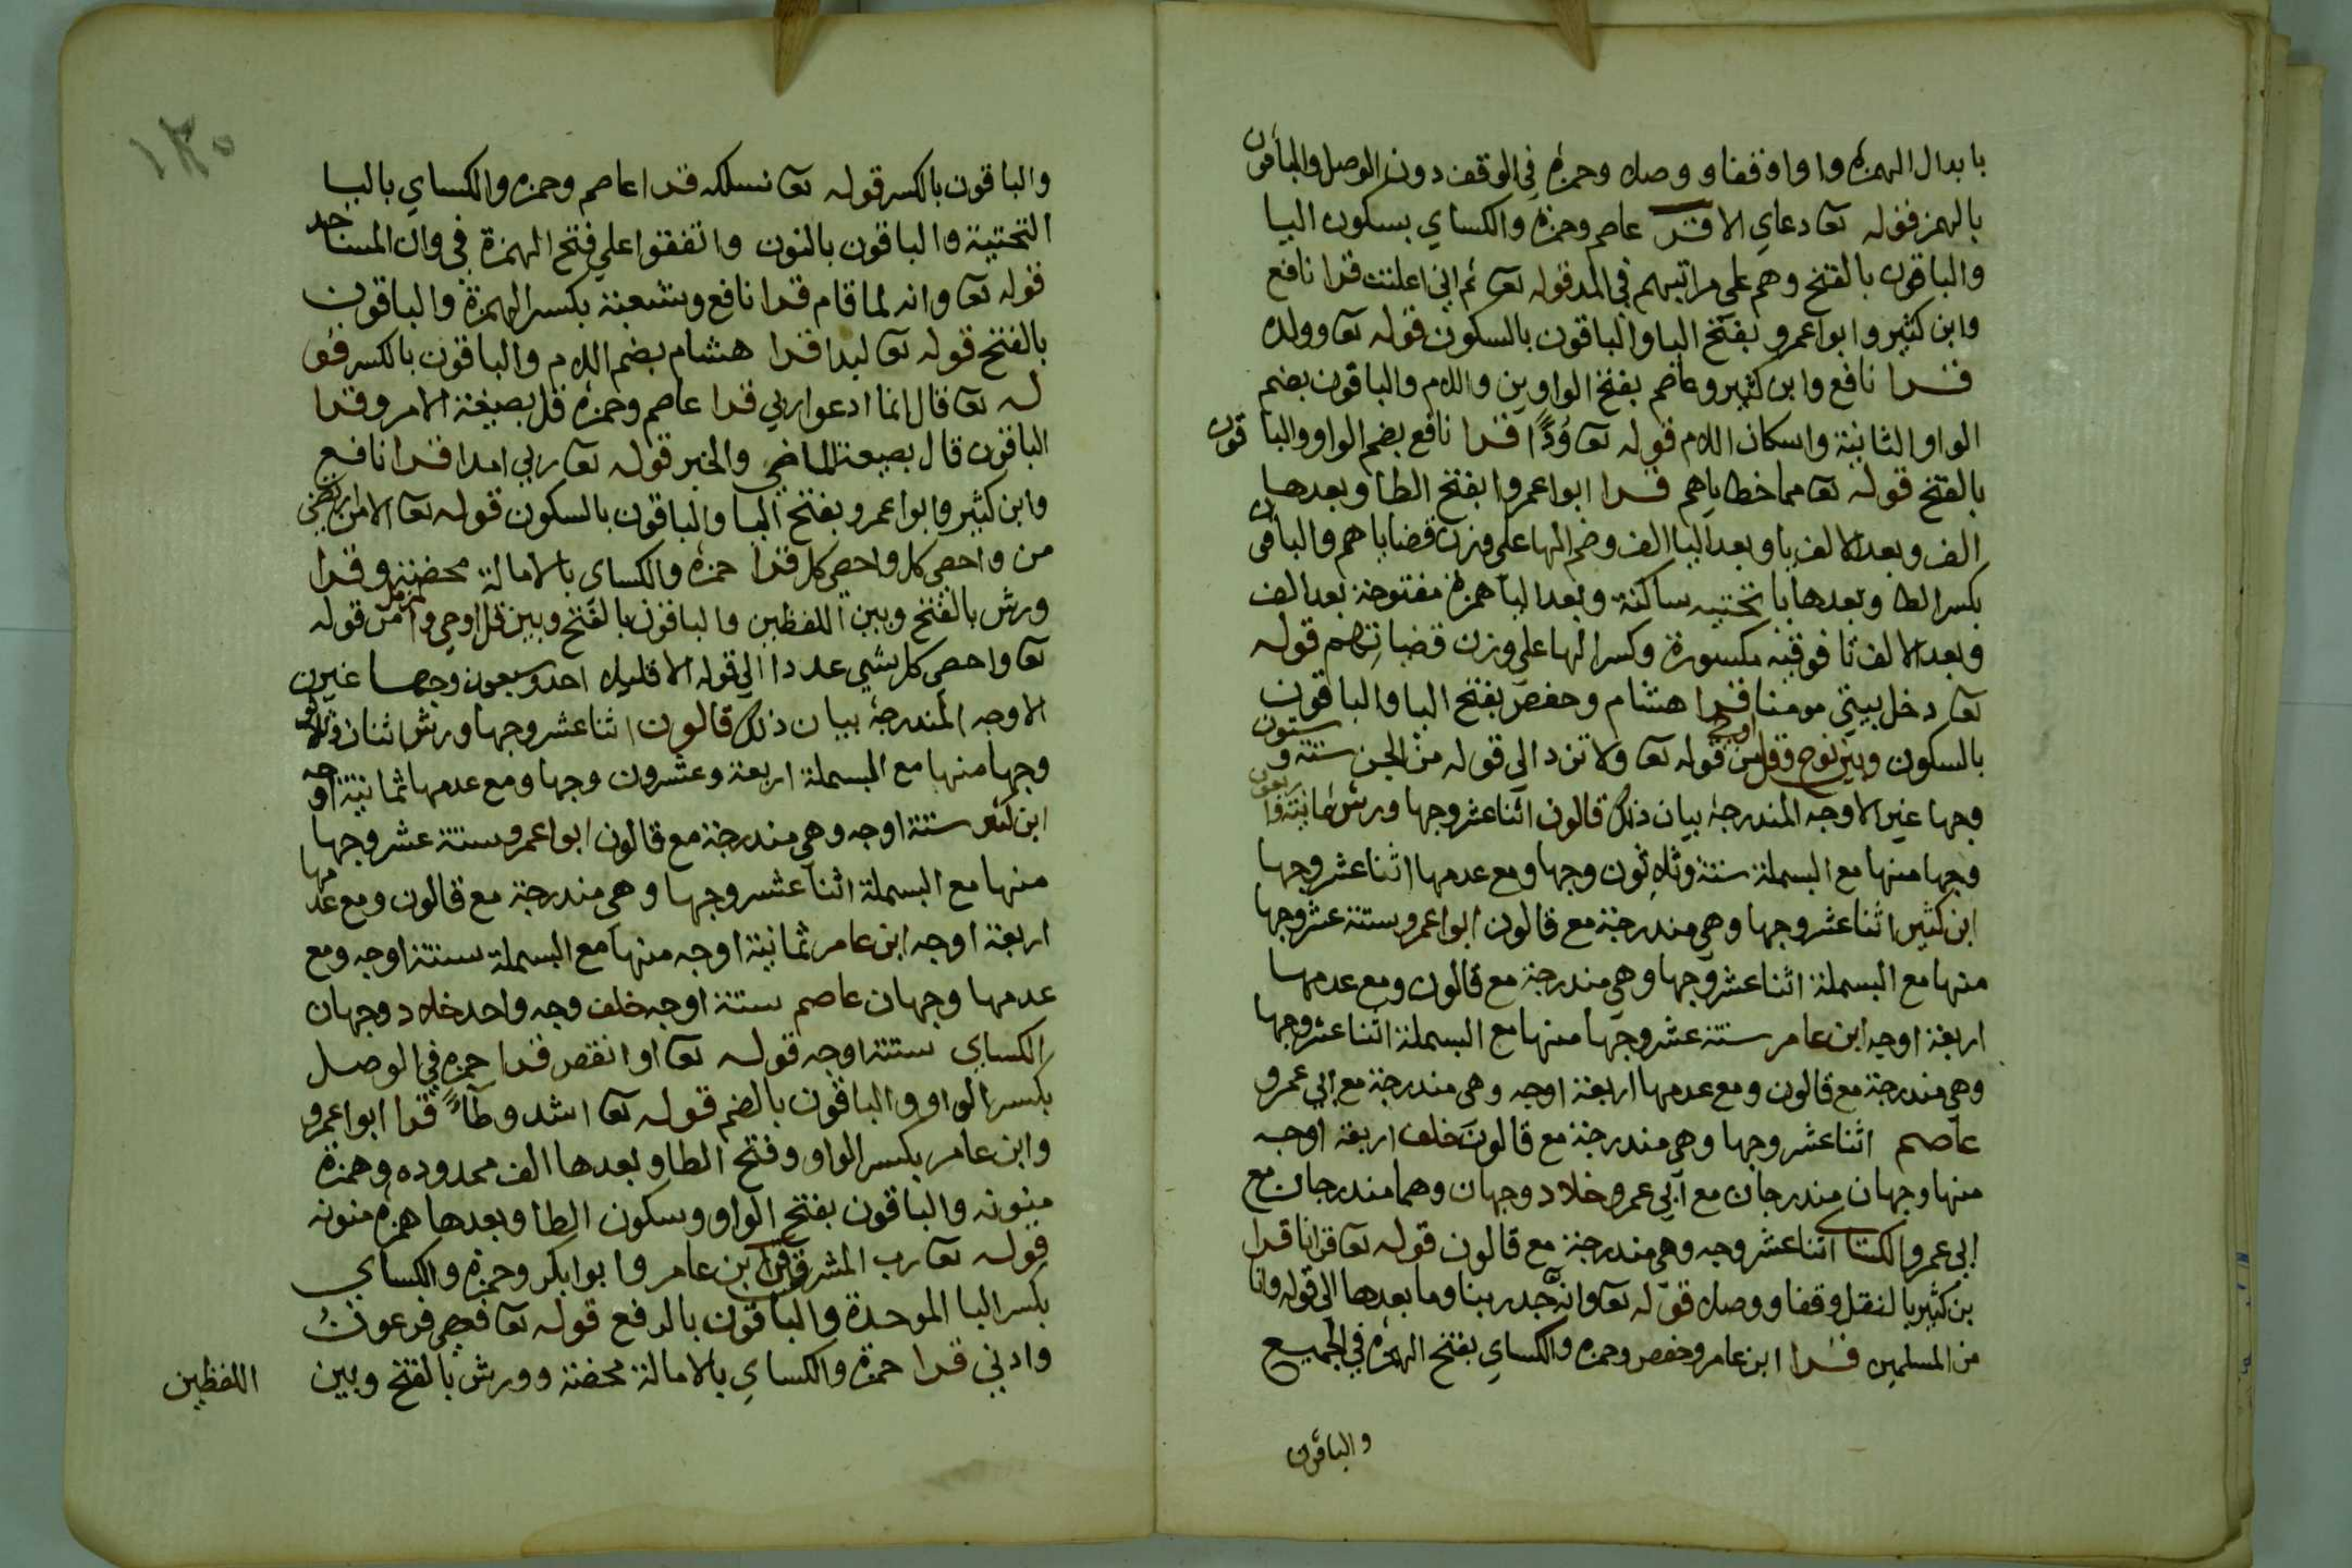 بابدال الهمزة واوا وقفا ووصلا وحمزة في الوقف دون الوصل والباقون
بالهمز قوله تعا دعاي الا قرا عاصم وحمزة والكساي بسكون اليا
والباقون بالفتح وهم علي مراتبهم في المد قوله تعا ثم اني اعلنت قرا نافع
وابن كثير وابوا عمرو بفتح اليا والباقون بالسكون قوله تعا وولده
قرا نافع وابن كثير وعاصم بفتح الواوين واللام والباقون بضم
الواو الثانية واسكان اللام قوله تعا وُدًّا قرا نافع بضم الواو والباقون
بالفتح قوله تعا مما خطاياهم قرا ابوا عمروا بفتح الطا وبعدها
الف وبعد الالف يا وبعد اليا الف وضم الها علي وزن قضاياهم والباقون
بكسر الطا وبعدها يا تحتيه ساكنة وبعد اليا همزة مفتوحة بعد الف
وبعد الالف تا فوقيه مكسورة وكسر الها علي وزن قضياتهم قوله
تعا دخل بيتي مومنا قرا هشام وحفص بفتح اليا والباقون
بالسكون وبين نوح وقل اوحي من قوله تعا ولا تزد الي قوله من الجن ستة وستون
وجها غير الاوجه المندرجة بيان ذلك قالون اثنا عشر وجها ورش ثمانية واربعون
وجها منها مع البسملة ستة وثلاثون وجها ومع عدمها اثنا عشر وجها
ابن كثير اثنا عشر وجها وهي مندرجة مع قالون ابوا عمرو ستة عشر وجها
منها مع البسملة اثنا عشر وجها وهي مندرجة مع قالون ومع عدمها
اربعة اوجه ابن عامر ستة عشر وجها منها مع البسملة اثنا عشر وجها
وهي مندرجة مع قالون ومع عدمها اربعة اوجه وهي مندرجة مع ابي عمرو
عاصم اثنا عشر وجها وهي مندرجة مع قالون خلف اربعة اوجه
منها وجهان مندرجان مع ابي عمرو خلاد وجهان وهما مندرجان مع
ابي عمرو الكساي اثنا عشر وجه وهي مندرجة مع قالون قوله تعا قرانا قرا
بن كثير بالنقل وقفا ووصلا قوله تعا وانه جد ربنا وما بعدها الي قوله وانا
من المسلمين قرا ابن عامر وحفص وحمزة والكساي بفتح الهمزة في الجميع
والباقون
١٣٠
والباقون بالكسر قوله تعا نسلكه قرا عاصم وحمزة والكساي باليا
التحتية والباقون بالنون واتفقوا علي فتح الهمزة في وان المساجد
قوله تعا وانه لما قام قرا نافع وشعبة بكسر الهمزة والباقون
بالفتح قوله تعا لبدا قرا هشام بضم اللام والباقون بالكسر قو
له تعا قال انما ادعوا ربي قرا عاصم وحمزة قل بصيغة الامر وقرا
الباقون قال بصيغة الماضي والخبر قوله تعا ربي امدا قرا نافع
وابن كثير وابوا عمرو بفتح اليا والباقون بالسكون قوله تعا الا من ارتضي
من واحصي كل واحصي كل قرا حمزة والكساي بالامالة محضة وقرا
ورش بالفتح وبين اللفظين والباقون بالفتح وبين قل اوحي والمزمل من قوله
تعا واحصي كل شي عددا الي قوله الا قليلا احد وسبعون وجها غير
الاوجه المندرجة بيان ذلك قالون اثنا عشر وجها ورش اثنان وثلاثون
وجها منها مع البسملة اربعة وعشرون وجها ومع عدمها ثمانية اوجه
ابن كثير ستة اوجه وهي مندرجة مع قالون ابوا عمرو ستة عشر وجها
منها مع البسملة اثنا عشر وجها وهي مندرجة مع قالون ومع عدمها
اربعة اوجه ابن عامر ثمانية اوجه منها مع البسملة ستة اوجه ومع
عدمها وجهان عاصم ستة اوجه خلف وجه واحد خلاد وجهان
الكساي ستة اوجه قوله تعا او انقص قرا حمزة في الوصل
بكسر الواو والباقون بالضم قوله تعا اشد وطآءً قرا ابوا عمرو
وابن عامر بكسر الواو وفتح الطا وبعدها الف ممدوده وهمزة
منونه والباقون بفتح الواو وسكون الطا وبعدها همزة منونه
قوله تعا رب المشرق قرا ابن عامر وابوا بكر وحمزة والكساي
بكسر البا الموحدة والباقون بالرفع قوله تعا فعصي فرعون
وادني قرا حمزة والكساي بالامالة محضة وورش بالفتح وبين
اللفظين